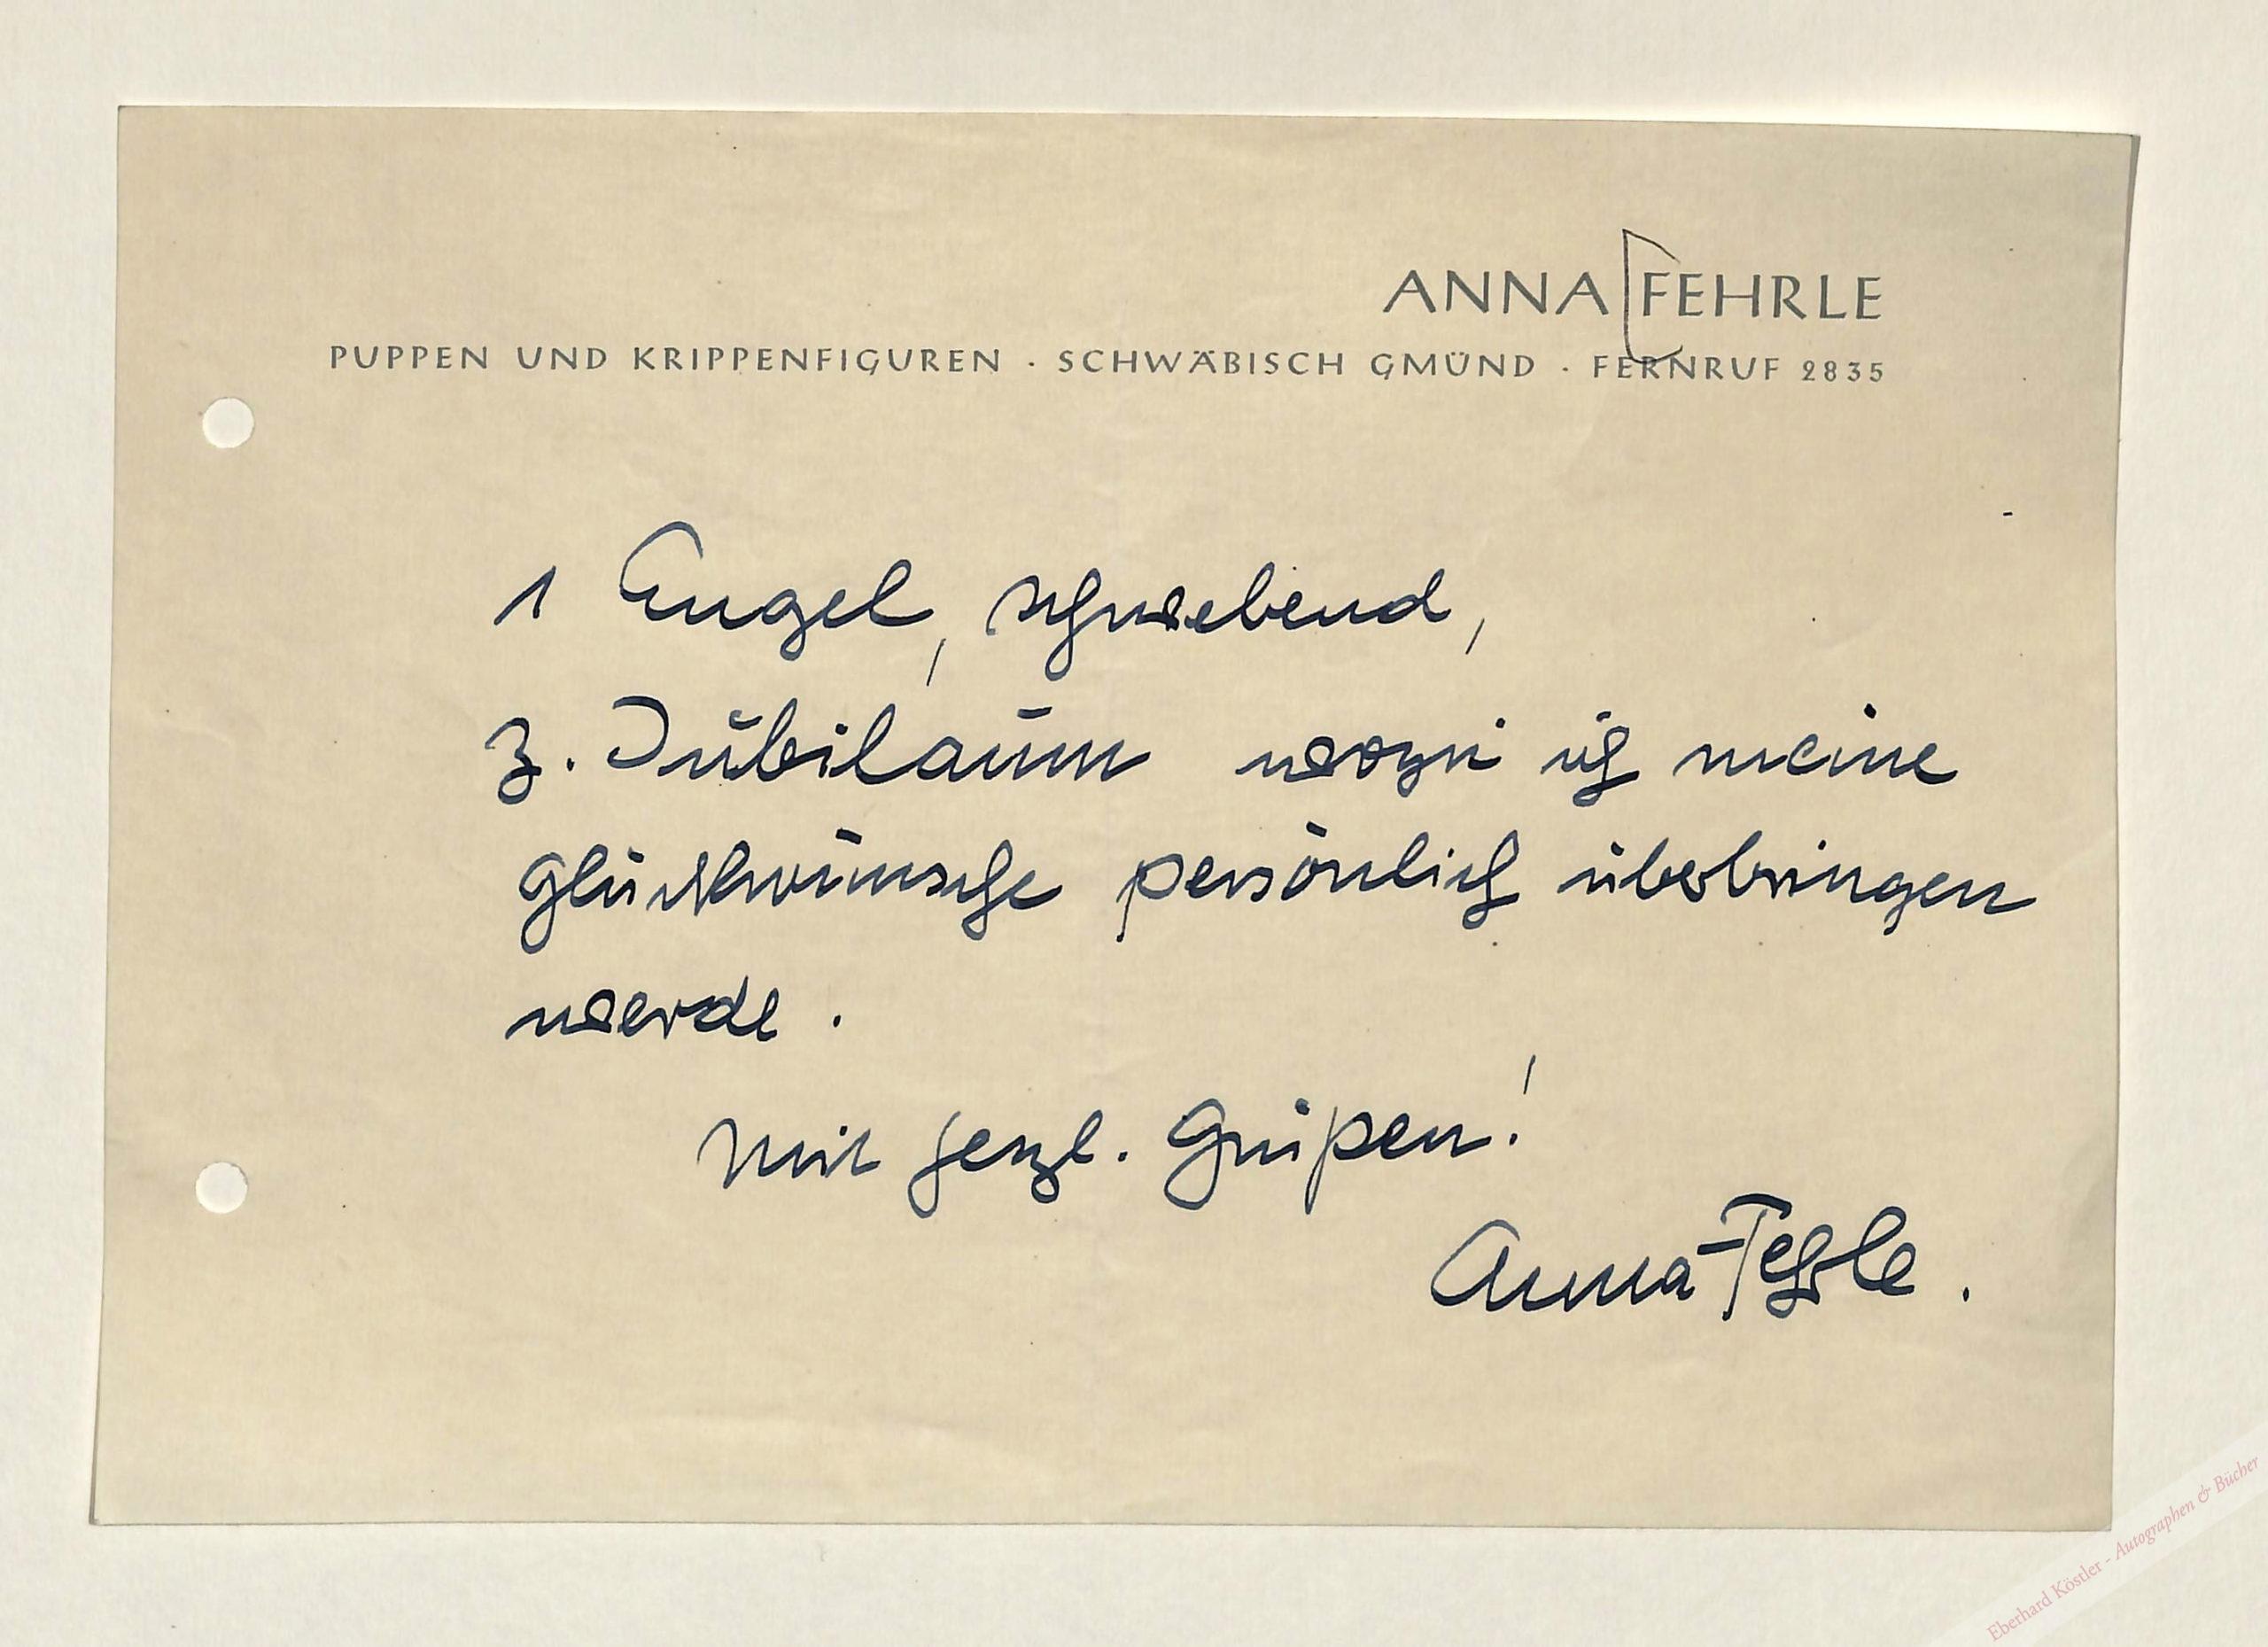 ANNA FEHRLE
PUPPEN UND KRIPPENFIGUREN · SCHWÄBISCH GMÜND · FERNRUF 2835
1 Engel, schwebend,
z. Jubiläum wozu ich meine
Glückwünsche persönlich überbringen
werde.
Mit herzl. Grüßen!
Anna Fehrle.
Eberhard Köstler - Autographen & Bücher